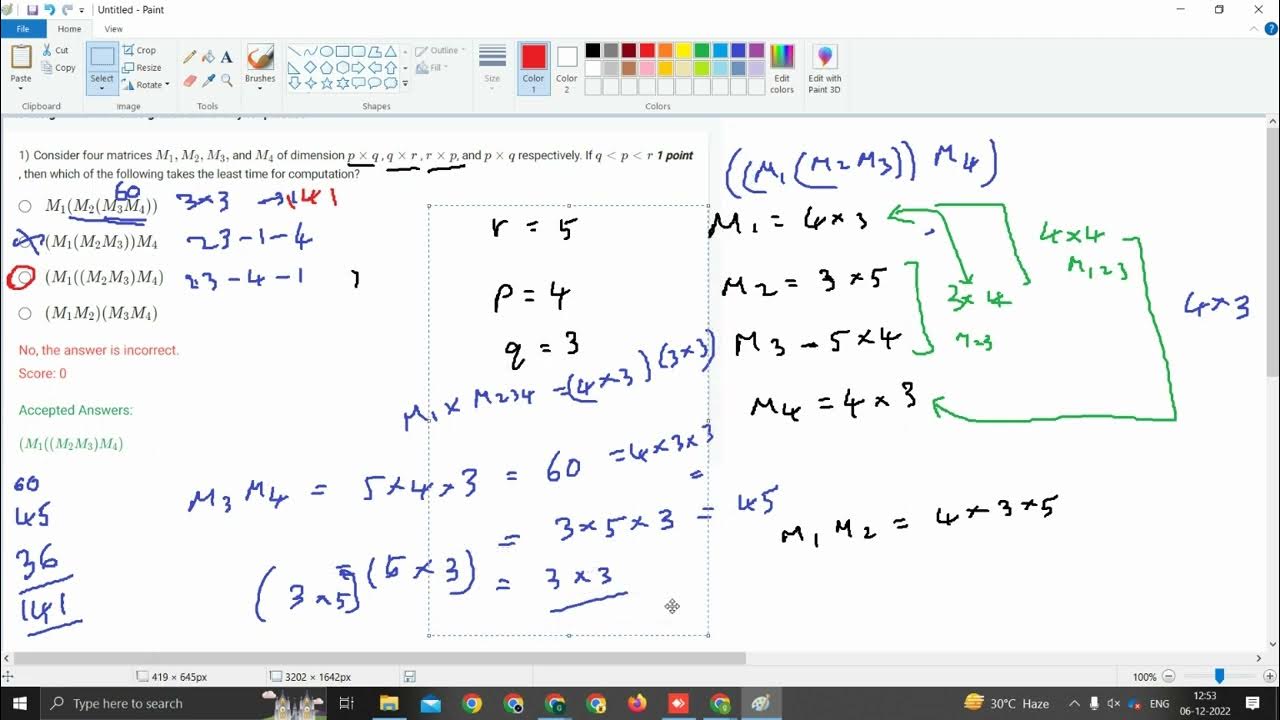 Untitled - Paint
File Home View
Paste
Cut
Copy
Clipboard
Select
Crop
Resize
Rotate
Image
Tools
Brushes
Shapes
Outline
Fill
Size
Color 1
Color 2
Colors
Edit colors
Edit with Paint 3D
1) Consider four matrices M₁, M₂, M₃, and M₄ of dimension p × q , q × r , r × p, and p × q respectively. If q < p < r 1 point
, then which of the following takes the least time for computation?
60
M₁(M₂(M₃M₄)) 3×3 → 141
(M₁(M₂M₃))M₄ 23-1-4
(M₁((M₂M₃)M₄) 23-4-1
(M₁M₂)(M₃M₄)
No, the answer is incorrect.
Score: 0
Accepted Answers:
(M₁((M₂M₃)M₄)
60
45
36
141
r = 5
p = 4
q = 3
M₁ × M₂₃₄ = (4×3) (3×3)
= 4×3×3
M₃ M₄ = 5×4×3 = 60
= 3×5×3 = 45
(3×5) (5×3) = 3×3
((M₁(M₂M₃)) M₄)
M₁ = 4×3
M₂ = 3×5
M₃ - 5×4
M₄ = 4×3
3×4
M₂₃
4×4
M₁₂₃
4×3
M₁ M₂ = 4×3×5
419 × 645px
3202 × 1642px
100%
Type here to search
30°C Haze
ENG
12:53
06-12-2022